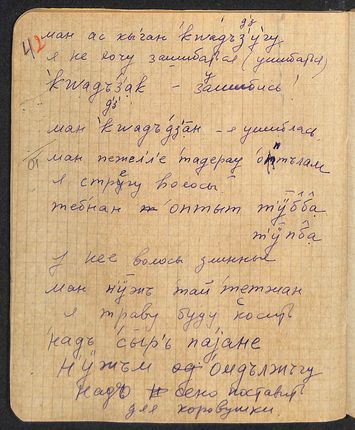 42
ман ас кыган 'кwадъз'ӱгу
я не хочу зашибаться (ушибаться)
'кwадъзак – зашиблись!
ман 'кwадъдзан – я ушиблась
ман пежел'л'е 'тадерау 'оптълам
я стригу волосы
теб'нан 'оптыт тӱ̄бба
тӱ̄пба
у нее волосы длинные
ман нӱжъ тай'тетжан
я траву буду косить
надъ 'сыръ паjане
нӱжъм од'ондължъгу
надо сено поставить
для коровушки